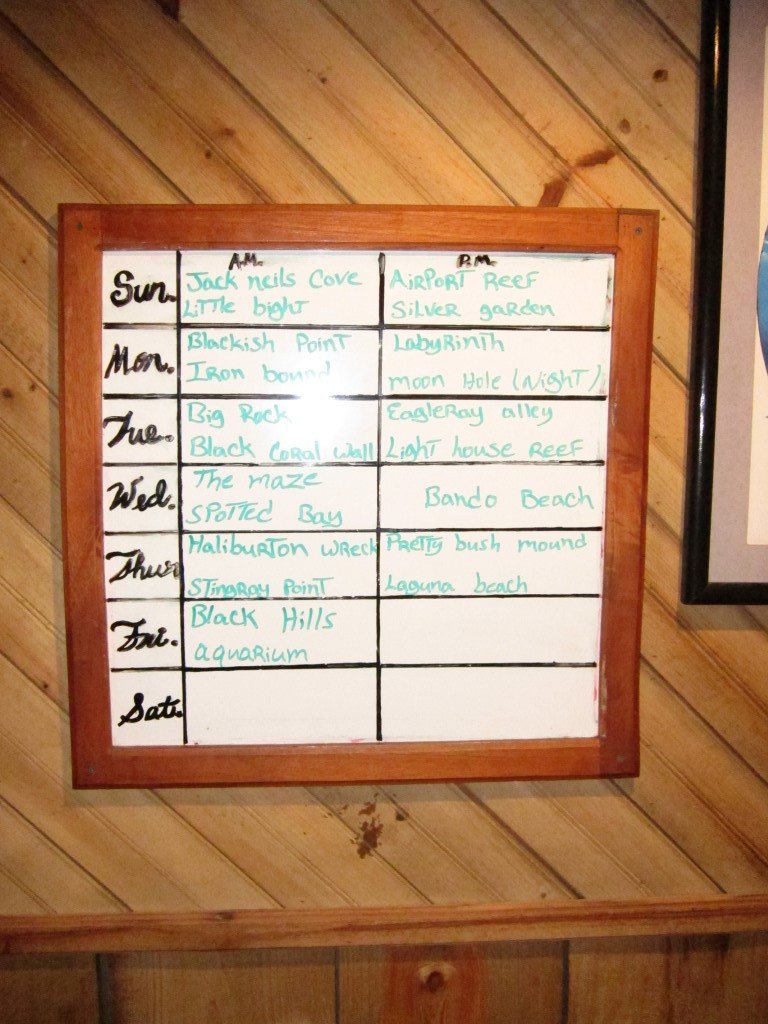 A.M. P.M.
Sun. Jack neils Cove AiRPORT REEF
LiTTle bighT Silver garden
Mon. Blackish PoinT LabyRinth
Iron bound moon Hole (NighT)
Tue. Big Rock EagleRay alley
Black Coral Wall LighT house REEF
Wed. The maze Bando Beach
SPoTTed Bay
Thur. HaliburTon wreck PreTTy bush mound
STingRay PoinT Laguna beach
Fri. Black Hills
aquaRium
Sat.